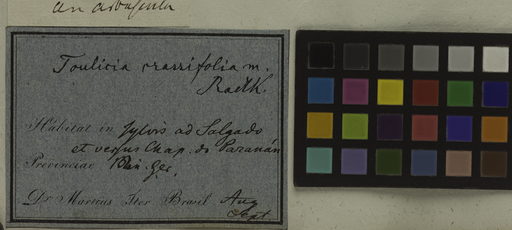 an arbuscula
Toulicia crassifolia m.
Radlk.
Habitat in sylvis ad Salgado
et versus Chap. do Paranán
Provinciae Min. Ger.
Dr. Martius Iter Brasil. Aug
Sept.